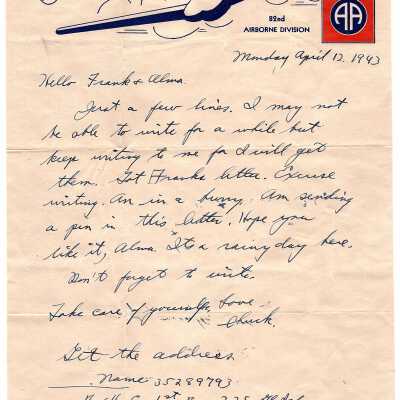 82nd
AIRBORNE DIVISION
AA
Monday April 12, 1943
Hello Frank & Alma.
Just a few lines. I may not
be able to write for a while but
keep writing to me for I will get
them. Got Franks letter. Excuse
writing. Am in a hurry. Am sending
a pin in this letter. Hope you
like it, Alma. Its a rainy day here.
Don't forget to write.
Take care of yourselfs, Love
Chuck.
Get the address
Name 35289793
1st 325